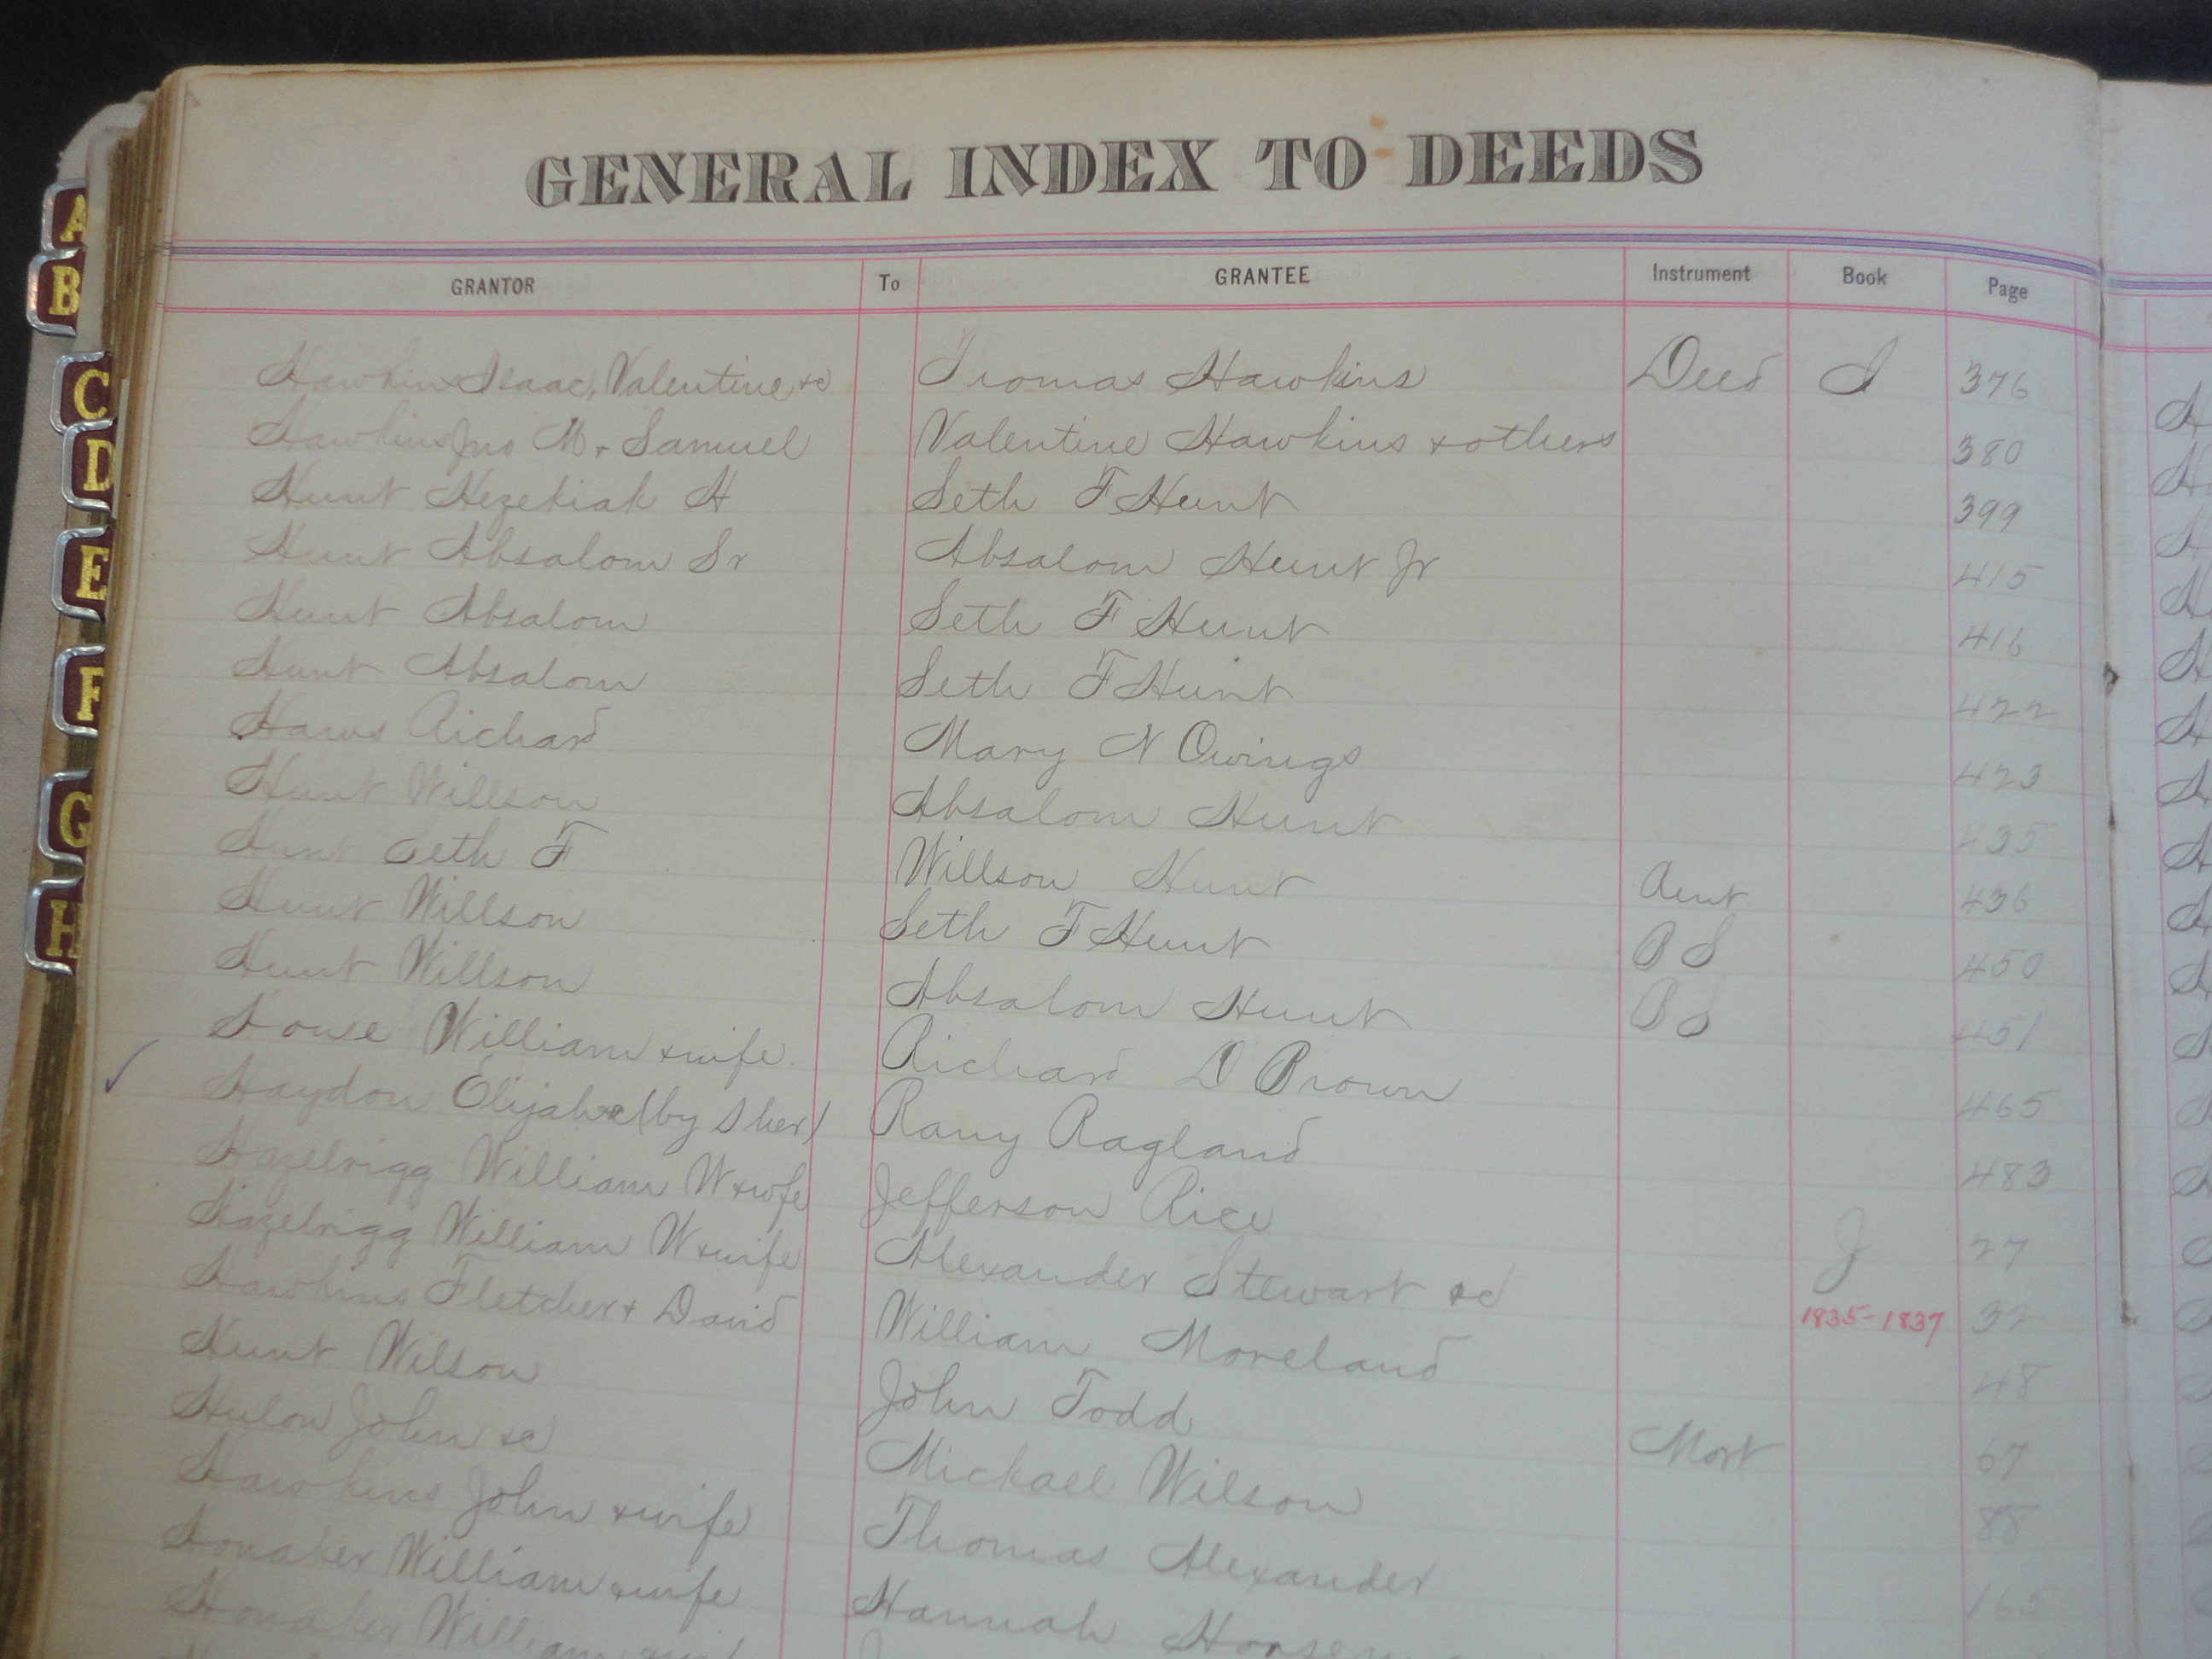 GENERAL INDEX TO DEEDS
GRANTOR To GRANTEE Instrument Book Page
Hawkins Isaac, Valentine &c Tromas Hawkins Deed I 376
Hawkins Jno M + Samuel Valentine Hawkins + others 380
Hunt Hezekiah H Seth F Hunt 399
Hunt Absalom Sr Absalom Hunt Jr 415
Hunt Absalom Seth F Hunt 416
Hunt Absalom Seth F Hunt 422
Haws Richard Mary N Owings 423
Hunt Willson Absalom Hunt 435
Hunt Seth F Willson Hunt 436
Hunt Willson Seth F Hunt B S 450
Hunt Willson Absalom Hunt B S 451
House William + wife Richard D Brown 465
Haydon Elijah &c (by Sher) Rany Ragland 483
Hazelrigg William W + wife Jefferson Rice J 27
Hazelrigg William W + wife Alexander Stewart &c 1835-1837 32
Hawkins Fletcher + David William Moreland 48
Hunt Wilson John Todd Mort 67
Hulon John &c Michael Wilson 88
Hawkins John + wife Thomas Alexander
Honaker William + wife Hannah
Honaker William
A
B
C
D
E
F
G
H